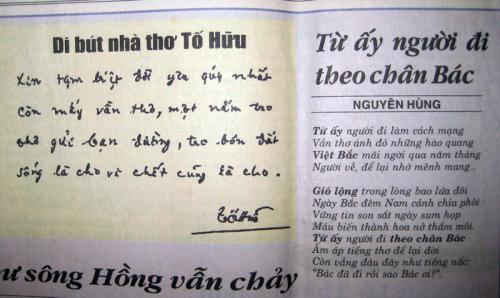 Di bút nhà thơ Tố Hữu
Xin tạm biệt đời yêu quý nhất
Còn mấy vần thơ, một nắm tro
Thơ gửi bạn đường, tro bón đất
Sống là cho và chết cũng là cho.
Tố Hữu
ư sông Hồng vẫn chảy
Từ ấy người đi
theo chân Bác
NGUYÊN HÙNG
Từ ấy người đi làm cách mạng
Vần thơ ánh đỏ những hào quang
Việt Bắc mãi ngời qua năm tháng
Người về, để lại nhớ mênh mang...
Gió lộng trong lòng bao lứa đôi
Ngày Bắc đêm Nam cánh chia phôi
Vững tin son sắt ngày sum họp
Máu biến thành hoa nở thắm môi.
Từ ấy người đi theo chân Bác
Âm áp tiếng thơ để lại đời
Còn vẳng đâu đây như tiếng nấc:
"Bác đã đi rồi sao Bác ơi?".